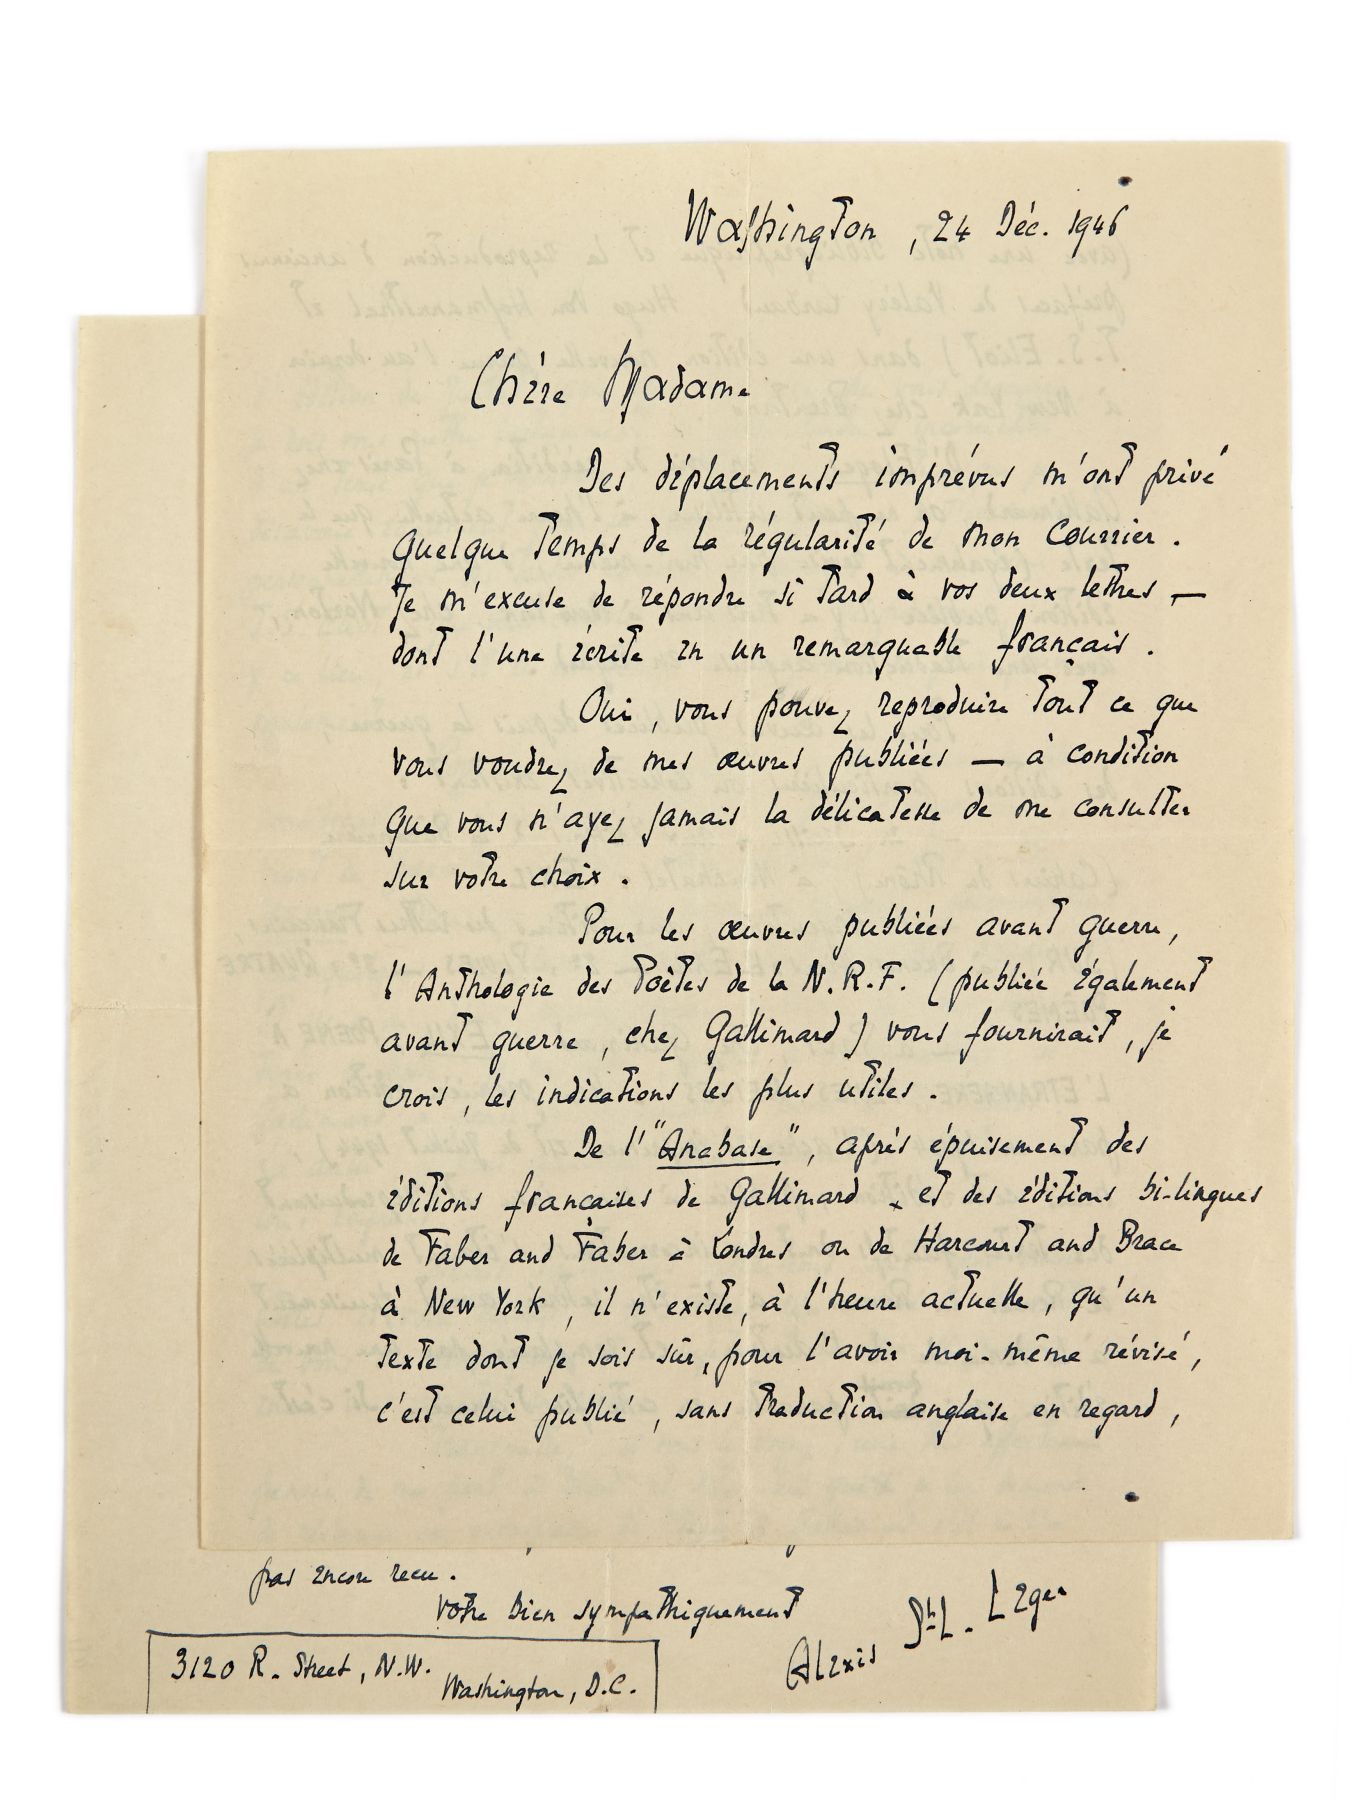 Washington, 24 Déc. 1946
Chère Madame
Des déplacements imprévus m'ont privé
quelque temps de la régularité de mon courrier.
Je m'excuse de répondre si tard à vos deux lettres —
dont l'une écrite en un remarquable français.
Oui, vous pouvez reproduire tout ce que
vous voudrez de mes œuvres publiées — à condition
que vous n'ayez jamais la délicatesse de me consulter
sur votre choix.
Pour les œuvres publiées avant guerre,
l'Anthologie des Poètes de la N.R.F. (publiée également
avant guerre, chez Gallimard) vous fournirait, je
crois, les indications les plus utiles.
De l'"Anabase", après épuisement des
éditions françaises de Gallimard et des éditions bi-lingues
de Faber and Faber à Londres ou de Harcourt and Brace
à New York, il n'existe, à l'heure actuelle, qu'un
texte dont je sois sûr, pour l'avoir moi-même révisé,
c'est celui publié, sans traduction anglaise en regard,
pas encore reçu.
Votre bien sympathiquement
Alexis St-L. Léger
3120 R. Street, N.W.
Washington, D.C.